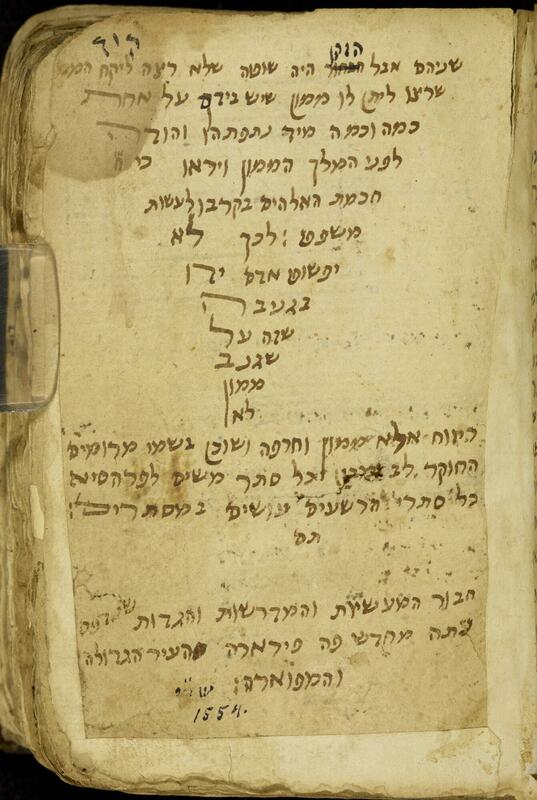 הזקן
שניהם אבל היה שוטה שלא רצה ליקח הממון
שרצו ליתן לו ממון שיש בידם על אחת
כמה וכמה מיד נתפתה והודה
לפני המלך הממון ויראו כי
חכמת האלהים בקרבו לעשות
משפט : לכך לא
יפשוט אדם ידו
בגניבה
שזה על
שגנב
ממון
לא
הרויח אלא ממון וחרפה ושוכן בשמי מרומים
החוקר לב וכל סתר משים לפרהסיא
כל סתרי הרשעים עושים במסתרים :
תם
חבור המעשיות והמדרשות והגדות שנדפס
עתה מחדש פה פירארה העיר הגדולה
והמפוארה :
1554.